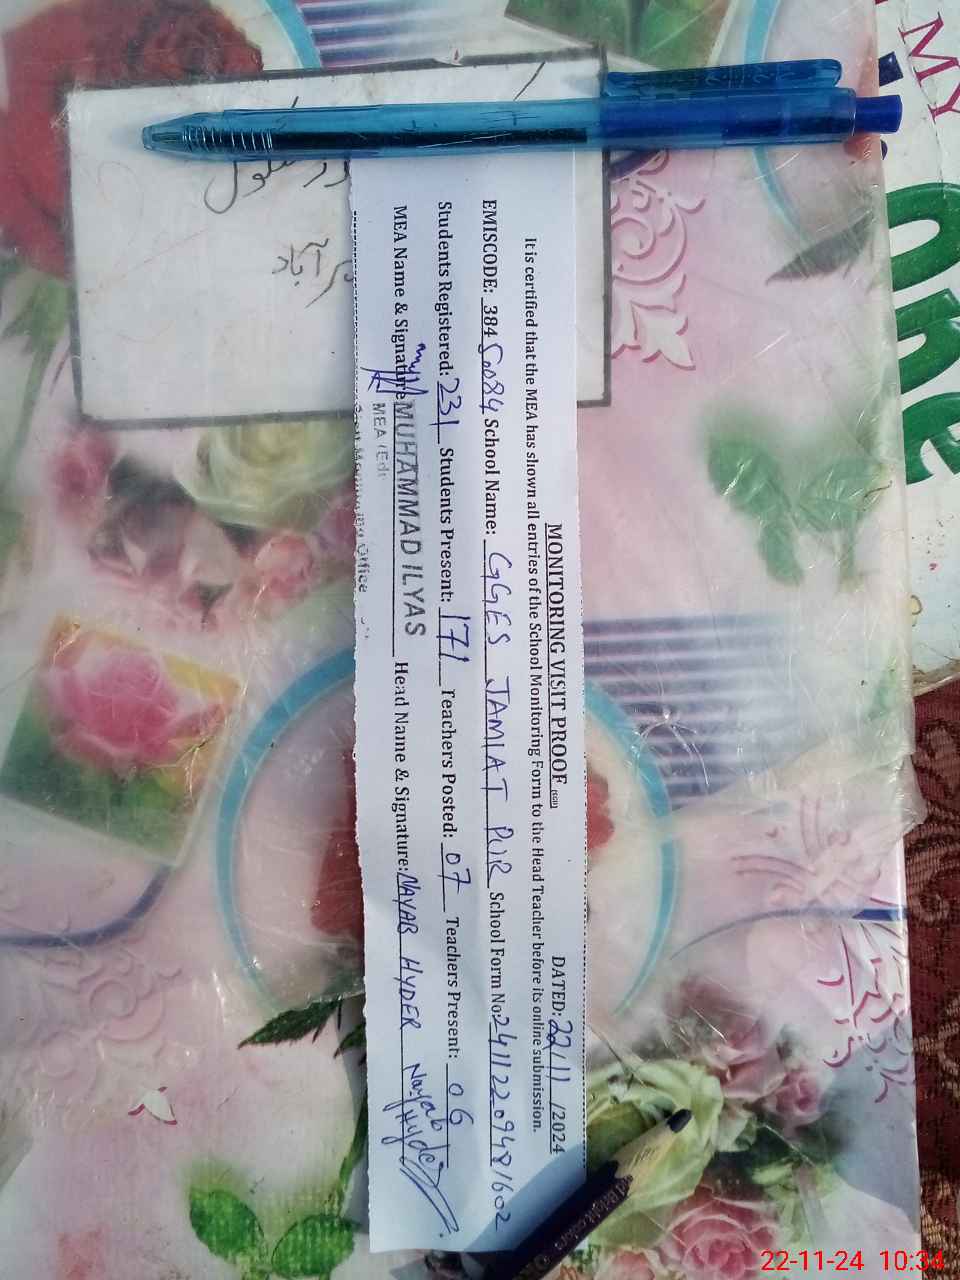 MONITORING VISIT PROOF (SED) DATED: 22/11/2024
It is certified that the MEA has shown all entries of the School Monitoring Form to the Head Teacher before its online submission.
EMISCODE: 38450084 School Name: GGES JAMIAT PUR School Form No: 24112209481602
Students Registered: 231 Students Present: 171 Teachers Posted: 07 Teachers Present: 06
MEA Name & Signature MUHAMMAD ILYAS Head Name & Signature: NAYAB HYDER Nayab Hyder
MEA (Ed
Office
MY
one
22-11-24 10:34